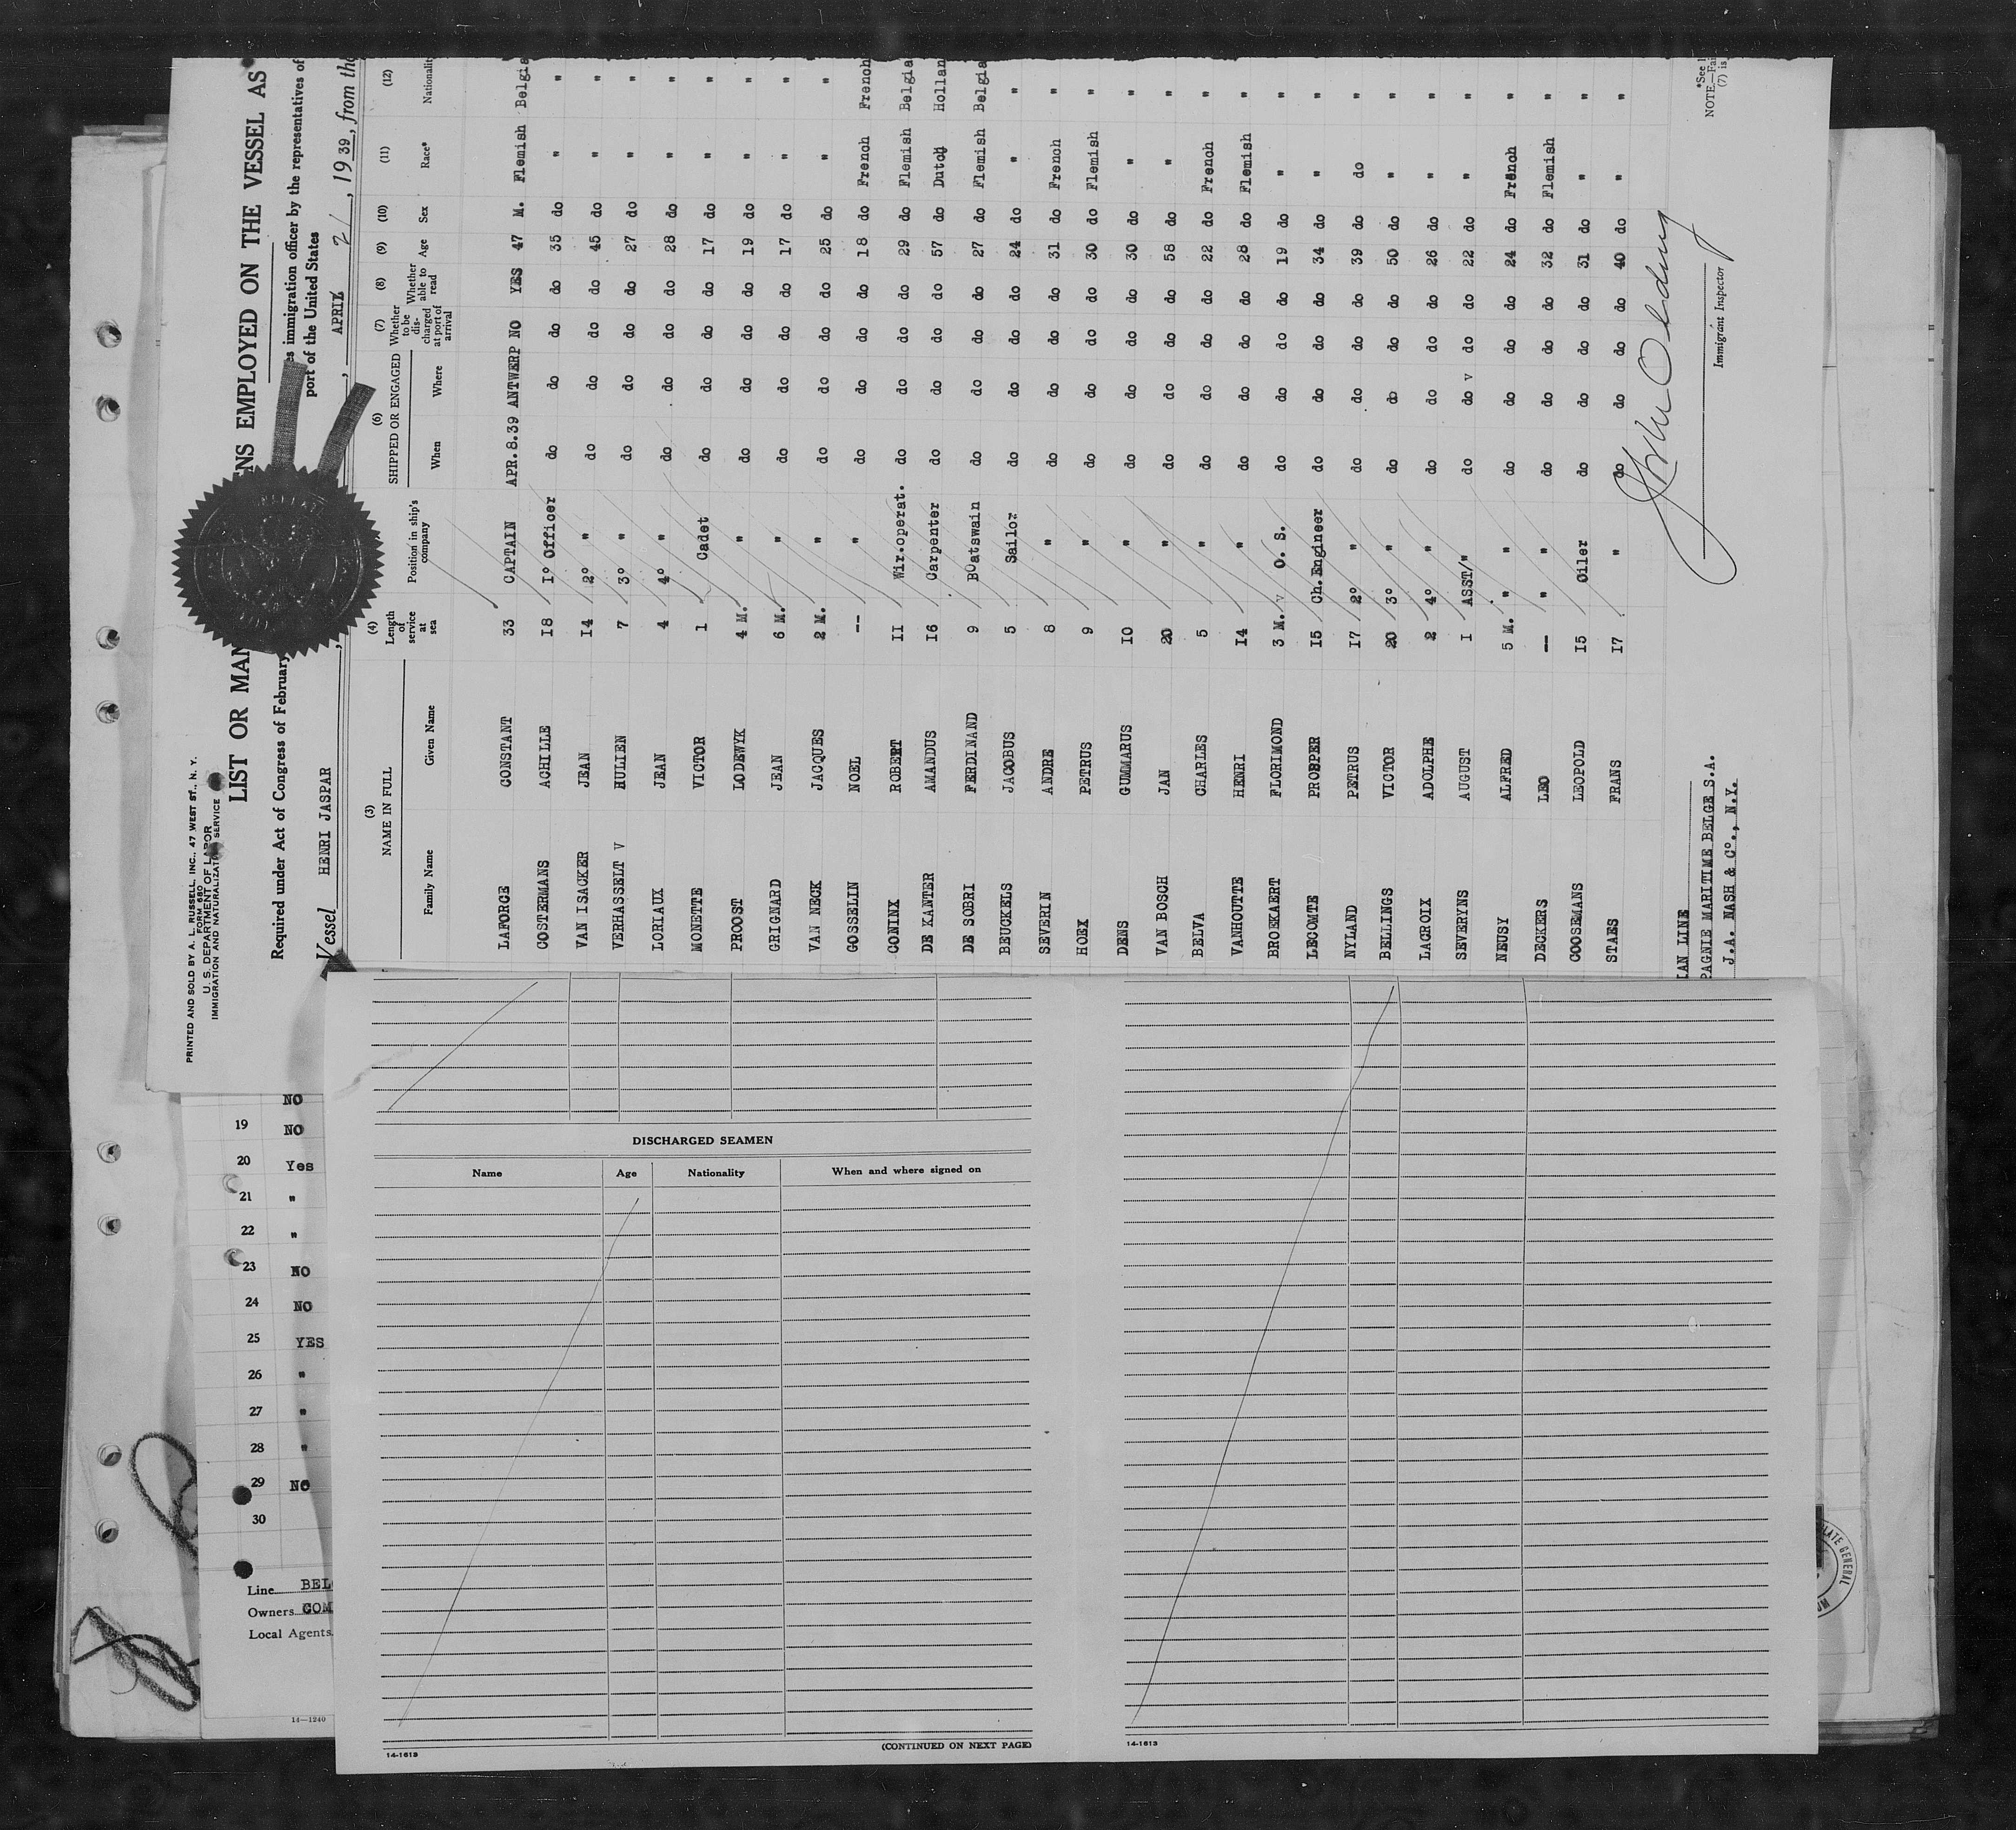 PRINTED AND SOLD BY A. L. RUSSELL, INC., 47 WEST ST., N. Y.
FORM 680
U. S. DEPARTMENT OF LABOR
IMMIGRATION AND NATURALIZATION SERVICE
LIST OR MAN NS EMPLOYED ON THE VESSEL AS
Required under Act of Congress of February es immigration officer by the representatives of
port of the United States
Vessel HENRI JASPAR , APRIL 21, 19 39, from the
(3) (4) (6) (7) (8) (9) (10) (11) (12)
NAME IN FULL Length of service at sea Position in ship's company SHIPPED OR ENGAGED Whether to be discharged at port of arrival Whether able to read Age Sex Race* Nationality
Family Name Given Name When Where
LAFORCE CONSTANT 33 CAPTAIN APR.8.39 ANTWERP NO YES 47 M. Flemish Belgia
COSTERMANS ACHILLE 18 1º Officer do do do do 35 do " "
VAN ISACKER JEAN 14 2º " do do do do 45 do " "
VERHASSELT V HULIEN 7 3º " do do do do 27 do " "
LORIAUX JEAN 4 4º " do do do do 28 do " "
MONETTE VICTOR 1 Cadet do do do do 17 do " "
PROOST LODEWYK 4 M. " do do do do 19 do " "
GRIGNARD JEAN 6 M. " do do do do 17 do " "
VAN NECK JACQUES 2 M. " do do do do 25 do " "
GOSSELIN NOEL -- " do do do do 18 do French French
CONINX ROBERT 11 Wir.operat. do do do do 29 do Flemish Belgia
DE KANTER AMANDUS 16 Carpenter do do do do 57 do Dutch Hollan
DE SOBRI FERDINAND 9 BOatswain do do do do 27 do Flemish Belgia
BEUCKELS JACOBUS 5 Sailor do do do do 24 do " "
SEVERIN ANDRE 8 " do do do do 31 do French "
HOEX PETRUS 9 " do do do do 30 do Flemish "
DENS GUMMARUS 10 " do do do do 30 do " "
VAN BOSCH JAN 20 " do do do do 58 do " "
BELVA CHARLES 5 " do do do do 22 do French "
VANHOUTTE HENRI 14 " do do do do 28 do Flemish "
BROEKAERT FLORIMOND 3 M. v O. S. do do do do 19 do " "
LECOMTE PROSPER 15 Ch.Engineer do do do do 34 do " "
NYLAND PETRUS 17 2º " do do do do 39 do do "
BELLINGS VICTOR 20 3º " do do do do 50 do " "
LACROIX ADOLPHE 2 4º " do do do do 26 do " "
SEVERYNS AUGUST 1 ASST/" do do v do do 22 do " "
NEUSY ALFRED 5 M. " " do do do do 24 do French "
DECKERS LEO -- " " do do do do 32 do Flemish "
COOSEMANS LEOPOLD 15 Oiler do do do do 31 do " "
STAES FRANS 17 " do do do do 40 do " "
IAN LINE
PAGNIE MARITIME BELGE S.A.
J.A. NASH & Cº., N.Y.
Immigrant Inspector
*See l
NOTE.—Fai
(7) is
NO
19 NO
20 Yes
21 "
22 "
23 NO
24 NO
25 YES
26 "
27 "
28 "
29 NO
30
Line BEL
Owners COM
Local Agents
14—1240
DISCHARGED SEAMEN
Name Age Nationality When and where signed on
(CONTINUED ON NEXT PAGE)
14-1613
14-1613
LATE GENERAL